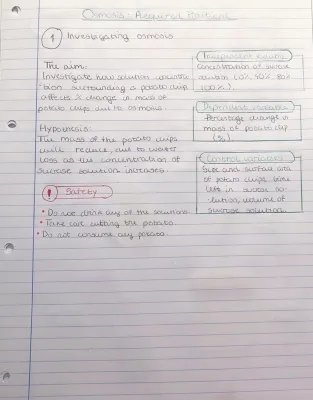 Osmosis: Required Practical
1 Investigating osmosis
The aim:
Investigate how solution concentra-
tion surrounding a potato chip
affects % change in mass of
potato chip due to osmosis.
Hypothesis:
The mass of the potato chips
will reduce, due to water
loss as the concentration of
sucrose solution increases.
! Safety
• Do not drink any of the solutions.
• Take care cutting the potato.
• Do not consume any potato.
Independent variable
Concentration of sucrose
solution
100%).
Dependent variable
Percentage change in
mass of potato chip
(%)
Control variables
Size and surface area
of potato chips, time
left in sucrose so-
lution, volume of
sucrose solution.